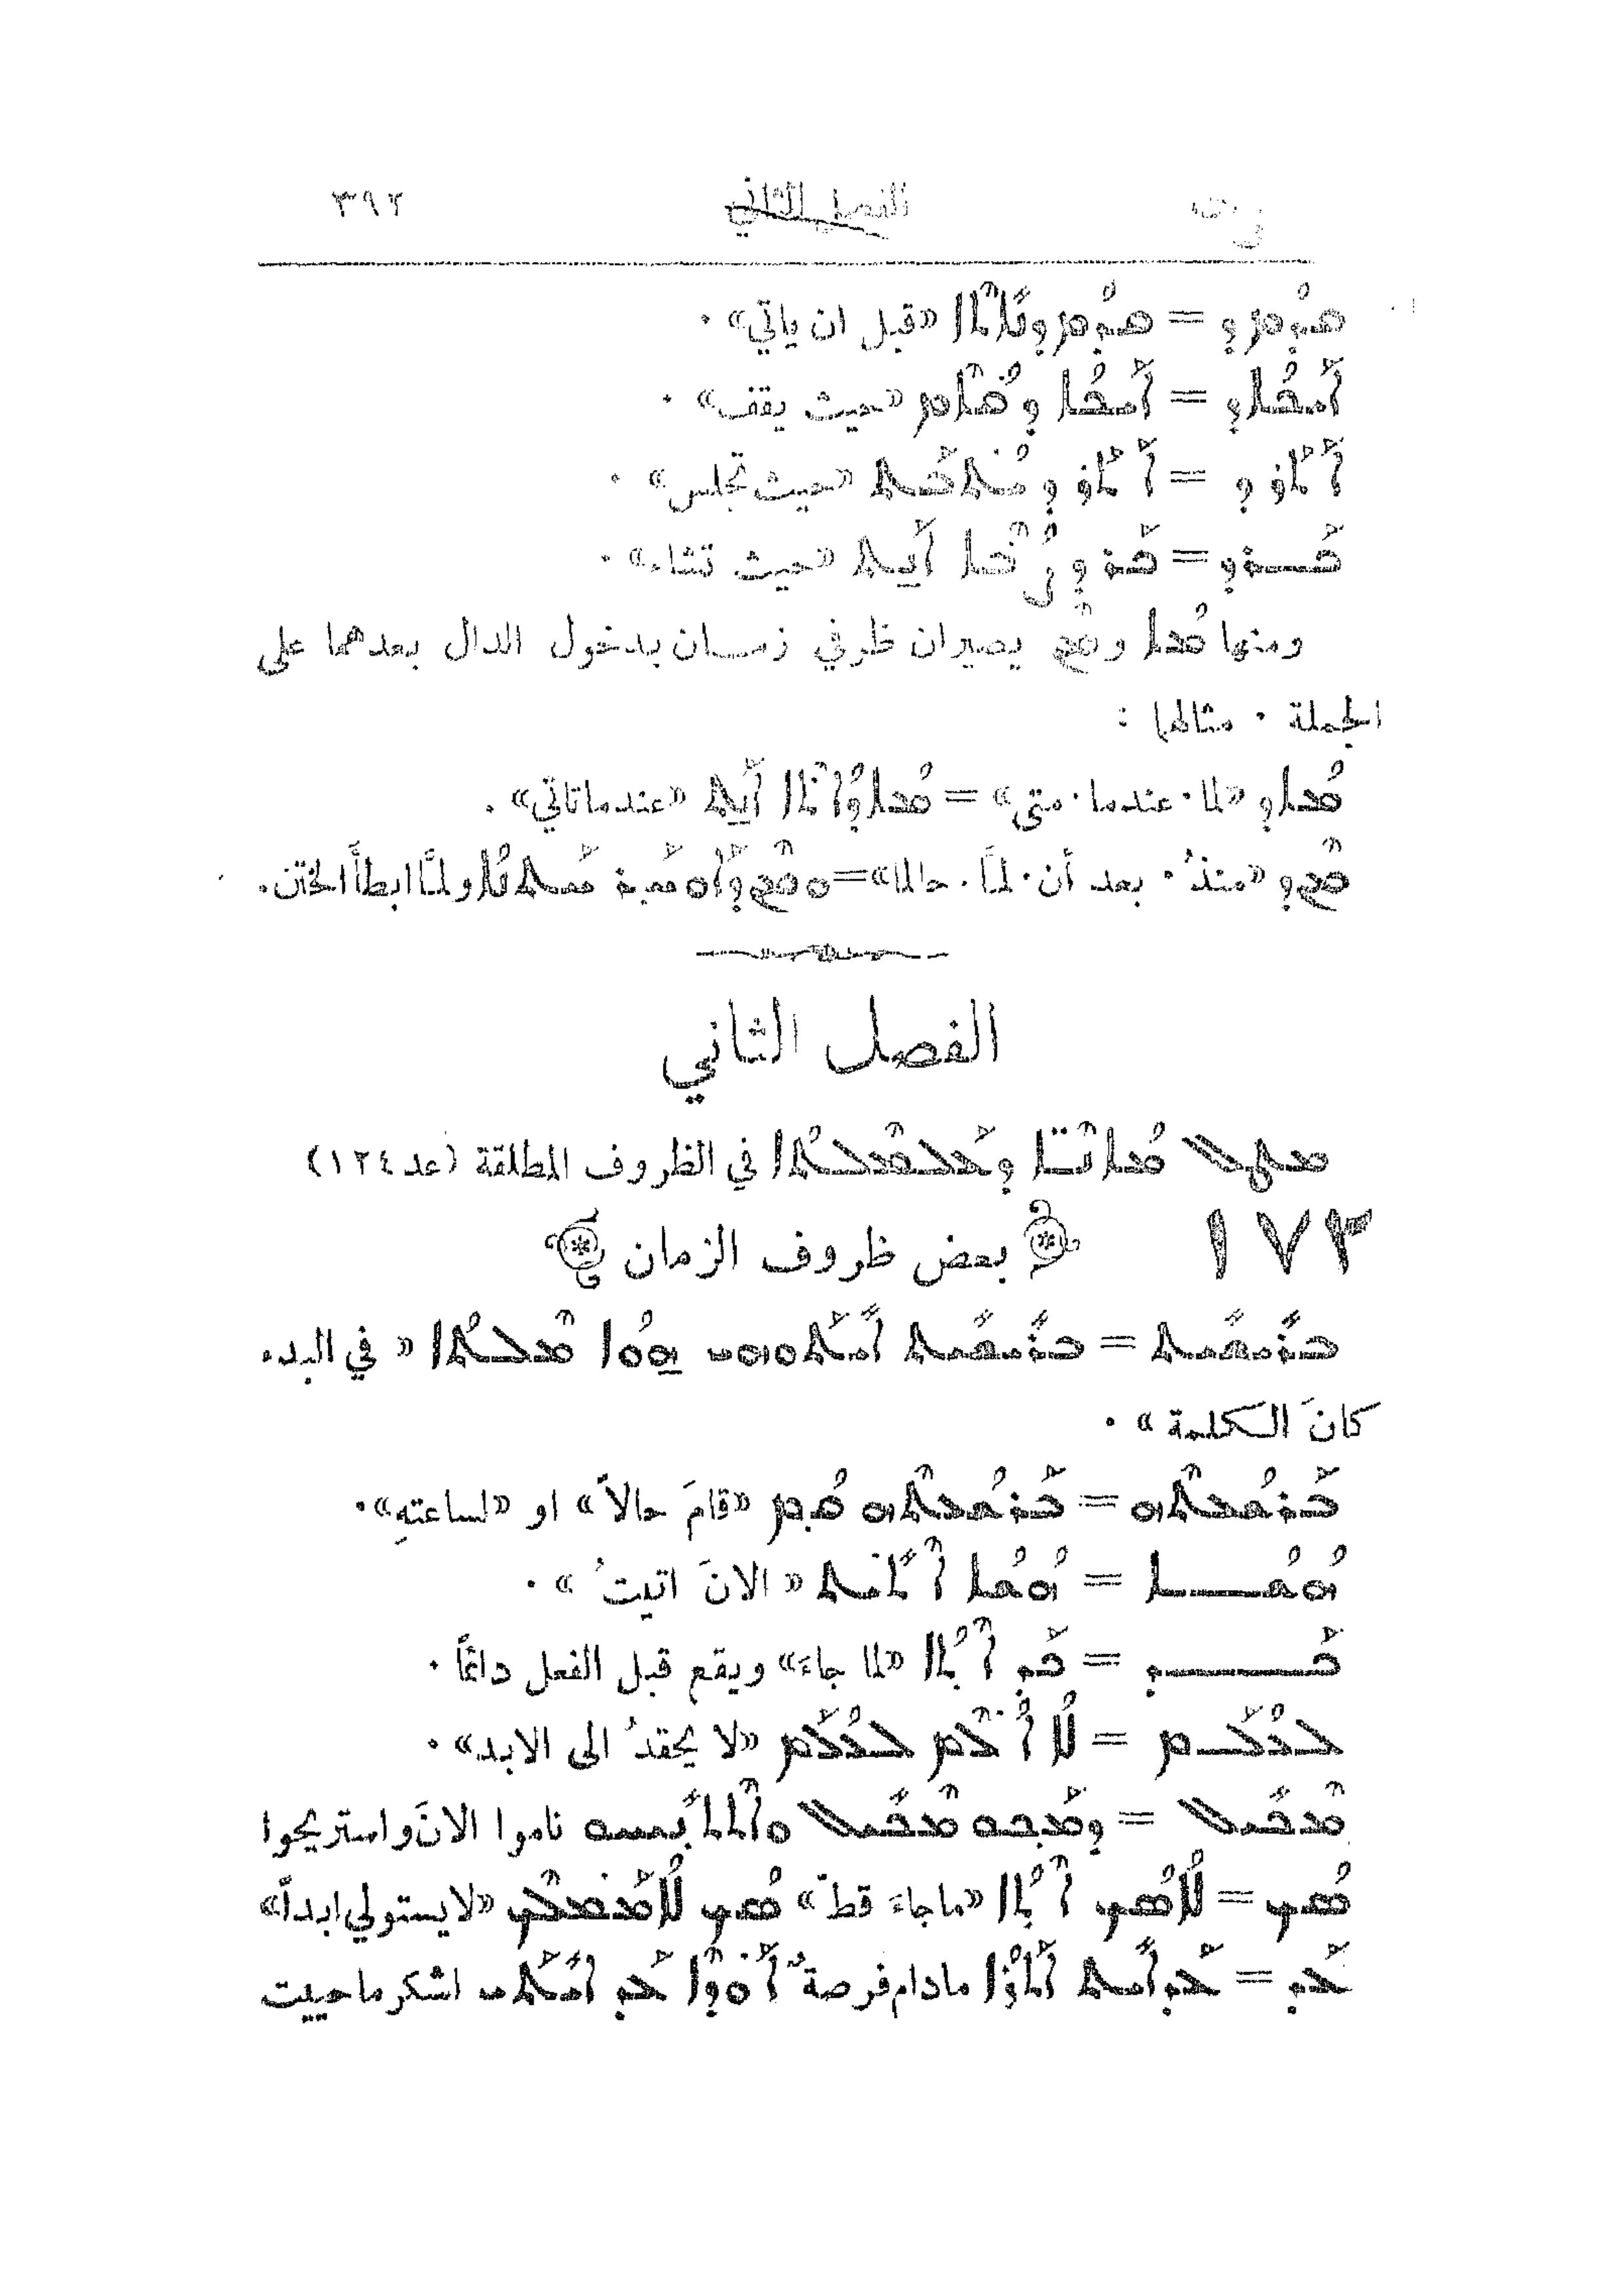 الفصل الثاني ٣٩٢
ܩܕܡ ܕ = ܩܕܡ ܕܢܐܬܐ «قبل ان ياتي» ·
ܐܝܟܐ ܕ = ܐܝܟܐ ܕܩܐܡ «حيث يقف» ·
ܐܬܪ ܕ = ܐܬܪ ܕ «حيث تجلس» ·
ܟܪ ܕ = ܟܪ ܕܨܒܐ ܐܢܬ «حيث تشاء» ·
ومنها ܡܐ و ܡܢ يصيران ظرفي زمان بدخول الدال بعدهما على
الجملة · مثالها :
ܡܐ ܕ «لما · عندما · متى» = ܡܐ ܕܐܬܐ ܐܢܬ «عندما تاتي» .
ܡܢ ܕ «منذُ · بعد أن · لمَّا . حالما» = ܘܡܢ ܕܐܘܚܪ ܚܬܢܐ ولمَّا ابطأَ الختن.
الفصل الثاني
ܡܛܠ في الظروف المطلقة (عد ١٢٤)
١٧٣ بعض ظروف الزمان
ܒܪܫܝܬ = ܒܪܫܝܬ ܐܝܬܘܗܝ ܗܘܐ ܡܠܬܐ « في البدء
كانَ الكلمة » ·
ܒܪܫܥܬܗ = ܒܪܫܥܬܗ ܩܡ «قامَ حالاً» او «لساعتهِ» ·
ܗܫܐ = ܗܫܐ ܐܬܝܬ « الانَ اتيتُ » ·
ܟܕ = ܟܕ ܐܬܐ «لما جاءَ» ويقع قبل الفعل دائمًا ·
ܠܥܠܡ = ܠܐ ܠܥܠܡ «لا يحقدُ الى الابد» ·
ܡܟܝܠ = ܕܡܟܘ ܡܟܝܠ ܘܐܬܬܢܝܚܘ ناموا الانَ واستريحوا
ܡܬܘܡ = ܠܐ ܡܬܘܡ ܐܬܐ «ما جاءَ قطّ» «لا يستولي ابداً»
ܥܕ = ܥܕ ܐܝܬ ܐܬܪܐ ما دام فرصةٌ ܐܘܕܐ ܥܕ اشكر ما حييت